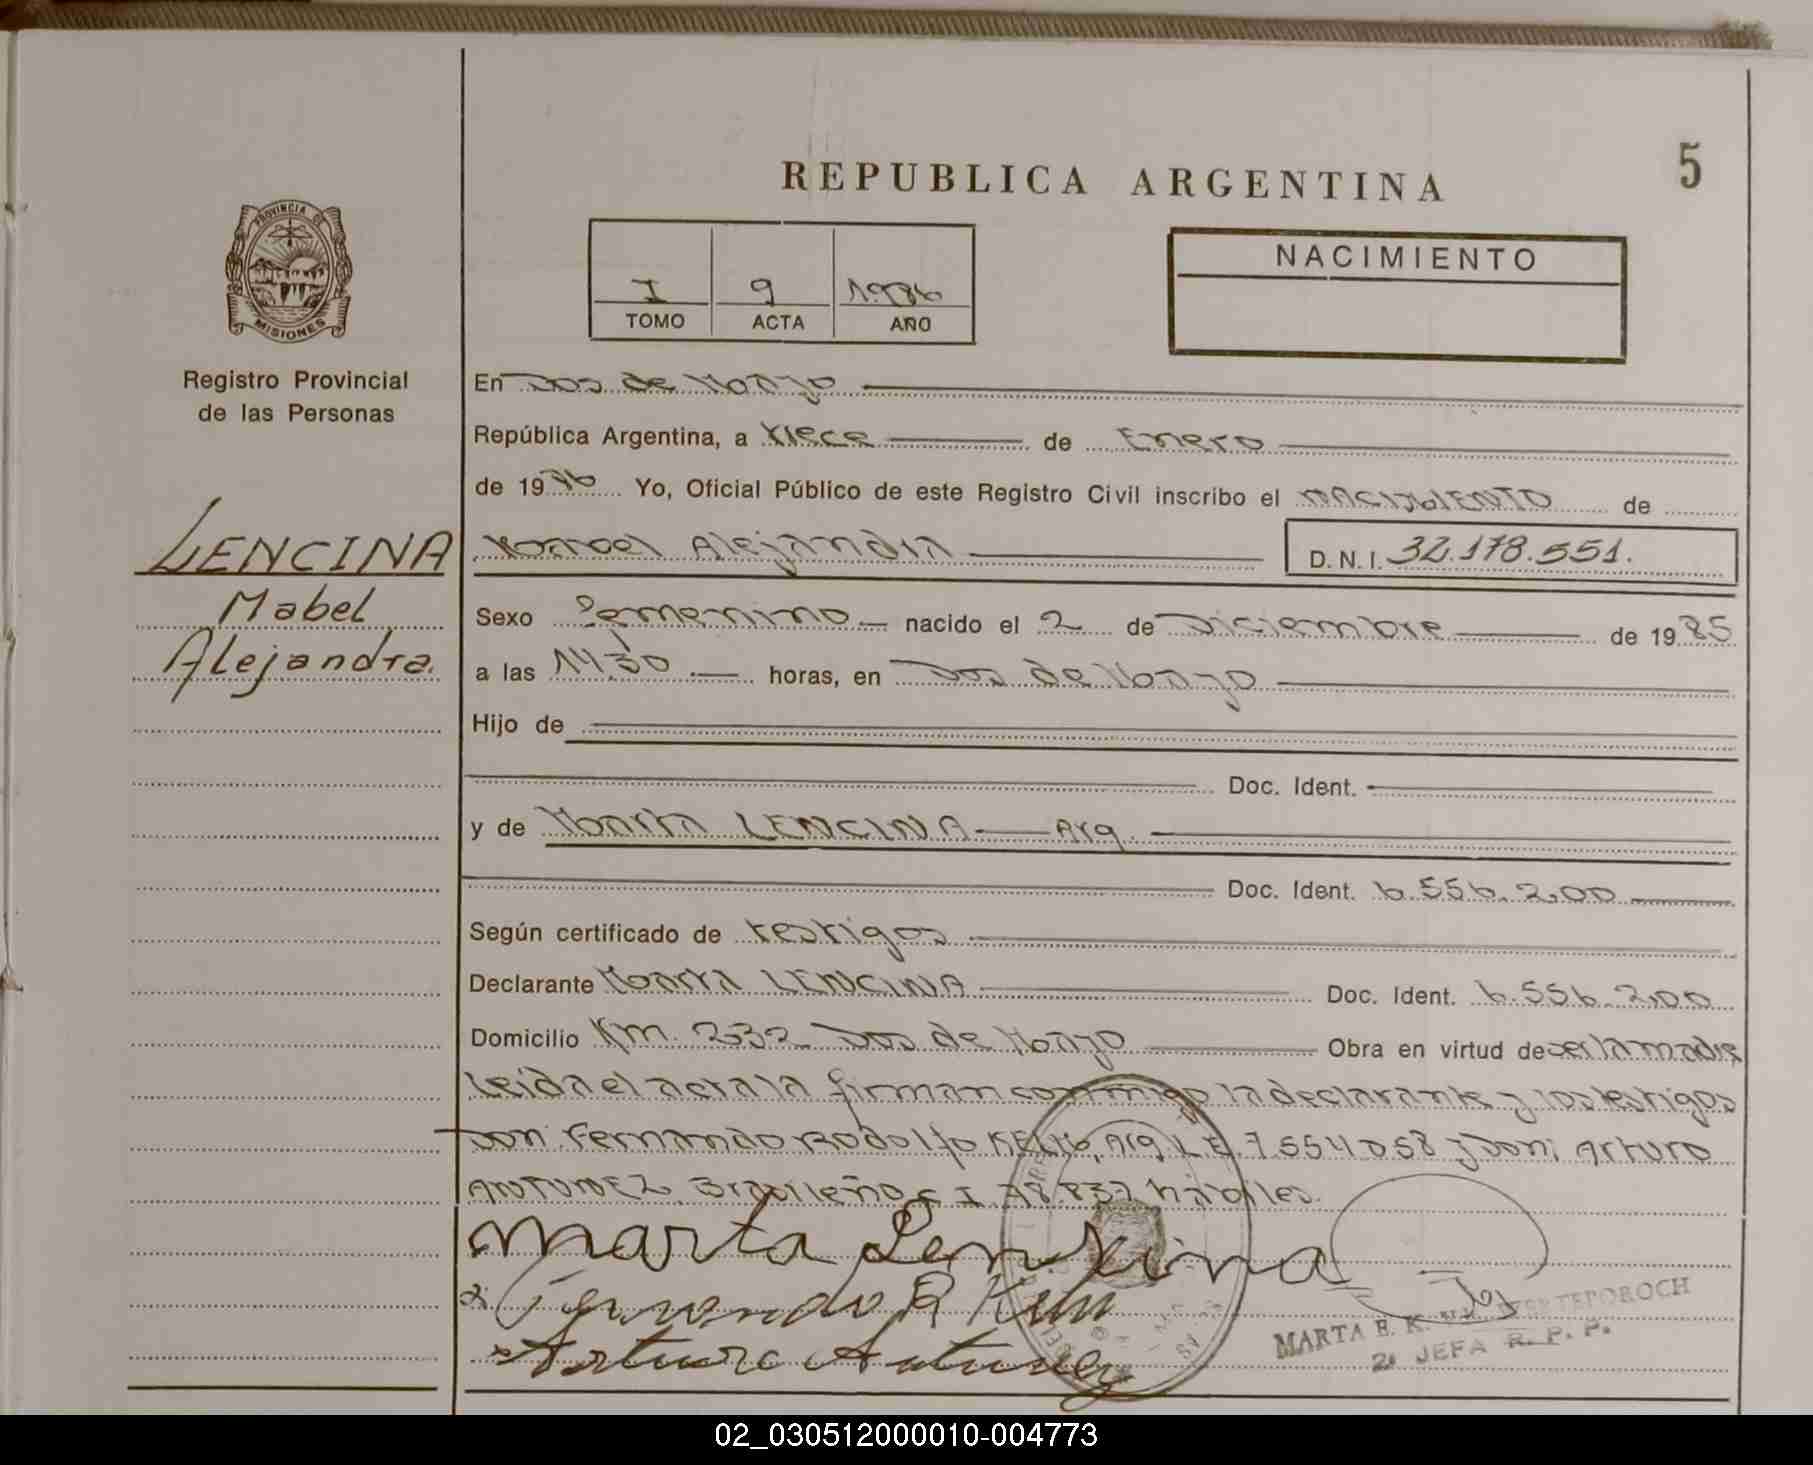 5
REPUBLICA ARGENTINA
PROVINCIA DE
MISIONES
Registro Provincial
de las Personas
I 9 1986
TOMO ACTA AÑO
NACIMIENTO
En Dos de Mayo
República Argentina, a trece de Enero
de 1986 Yo, Oficial Público de este Registro Civil inscribo el NACIMIENTO de
LENCINA
Mabel
Alejandra.
Mabel Alejandra D.N.I. 32.178.551.
Sexo Femenino nacido el 2 de Diciembre de 1985
a las 14.30 horas, en Dos de Mayo
Hijo de
Doc. Ident.
y de Marta LENCINA Arg.
Doc. Ident. 6.556.200
Según certificado de testigos
Declarante Marta LENCINA Doc. Ident. 6.556.200
Domicilio Km. 232 Dos de Mayo Obra en virtud de ser la madre
Leida el acta la firman conmigo la declarante y los testigos
Don: Fernando Rodolfo Arg. L.E. 7.554.058 y Don: Arturo
ANTUNEZ Brasileño C I 78.837 hábiles.
Marta Lenssina
Fernando R
Arturo Antunez
MARTA E. K. TEPOROCH
2a JEFA R. P. P.
02_030512000010-004773